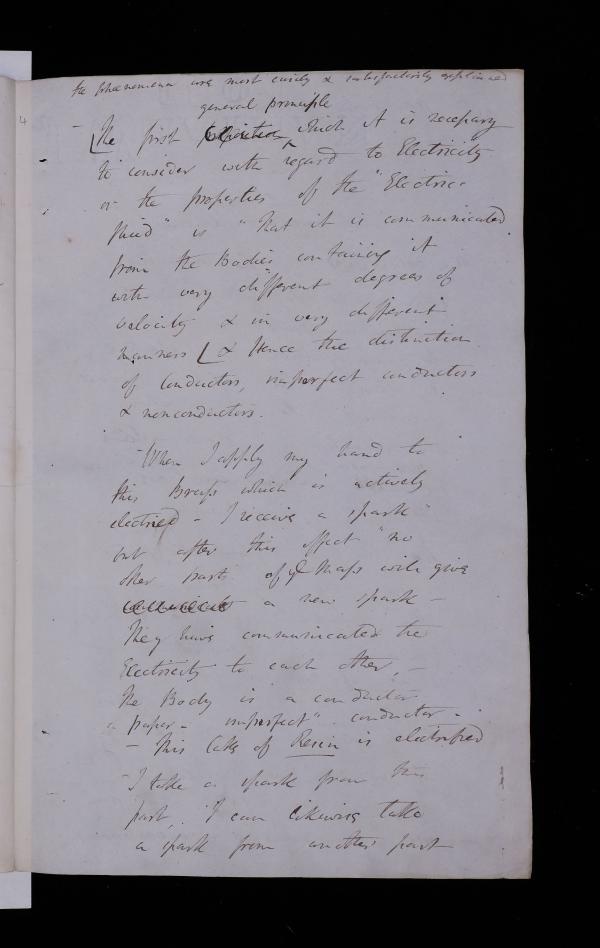 the phænomena are most easily & satisfactorily explained
general principle
4
– [The first which it is necessary
to consider with regard to Electricity
or the properties of the "Electric
fluid" is "That it is communicated
from the Bodies containing it
with very different degrees of
velocity & in very different
manners [& Hence the distinction
of Conductors, imperfect conductors
& nonconductors.
– When I apply my hand to
this Brass which is actively
electrified – I receive a spark"
but after this effect "no
other parts of ye Mass will give
communicate a new spark –
They have communicated the
Electricity to each other, –
The Body is a conductor
a paper – imperfect" conductor –
– This Cake of Resin is electrified
– I take a spark from this
part, I can likewise take
a spark from another part